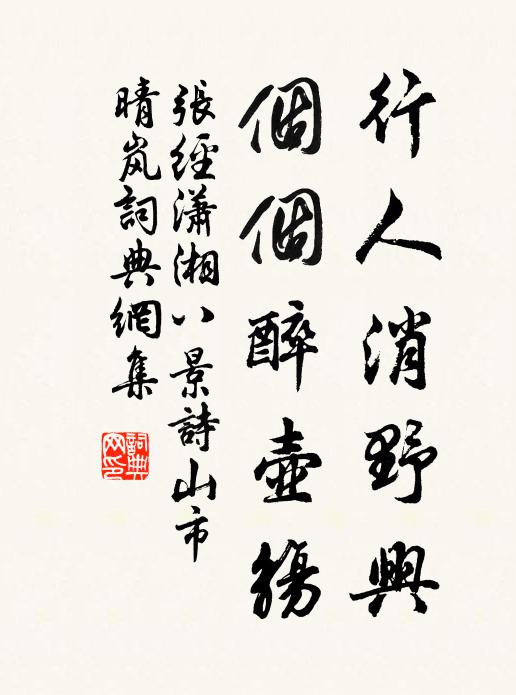 行人消野興
個個醉壺觴
張經瀟湘八景詩山市
晴岚詞典網集
詞典网印